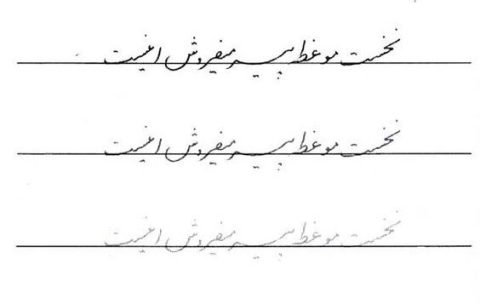 نخست موعظه پیر میفروش اینست
نخست موعظه پیر میفروش اینست
نخست موعظه پیر میفروش اینست